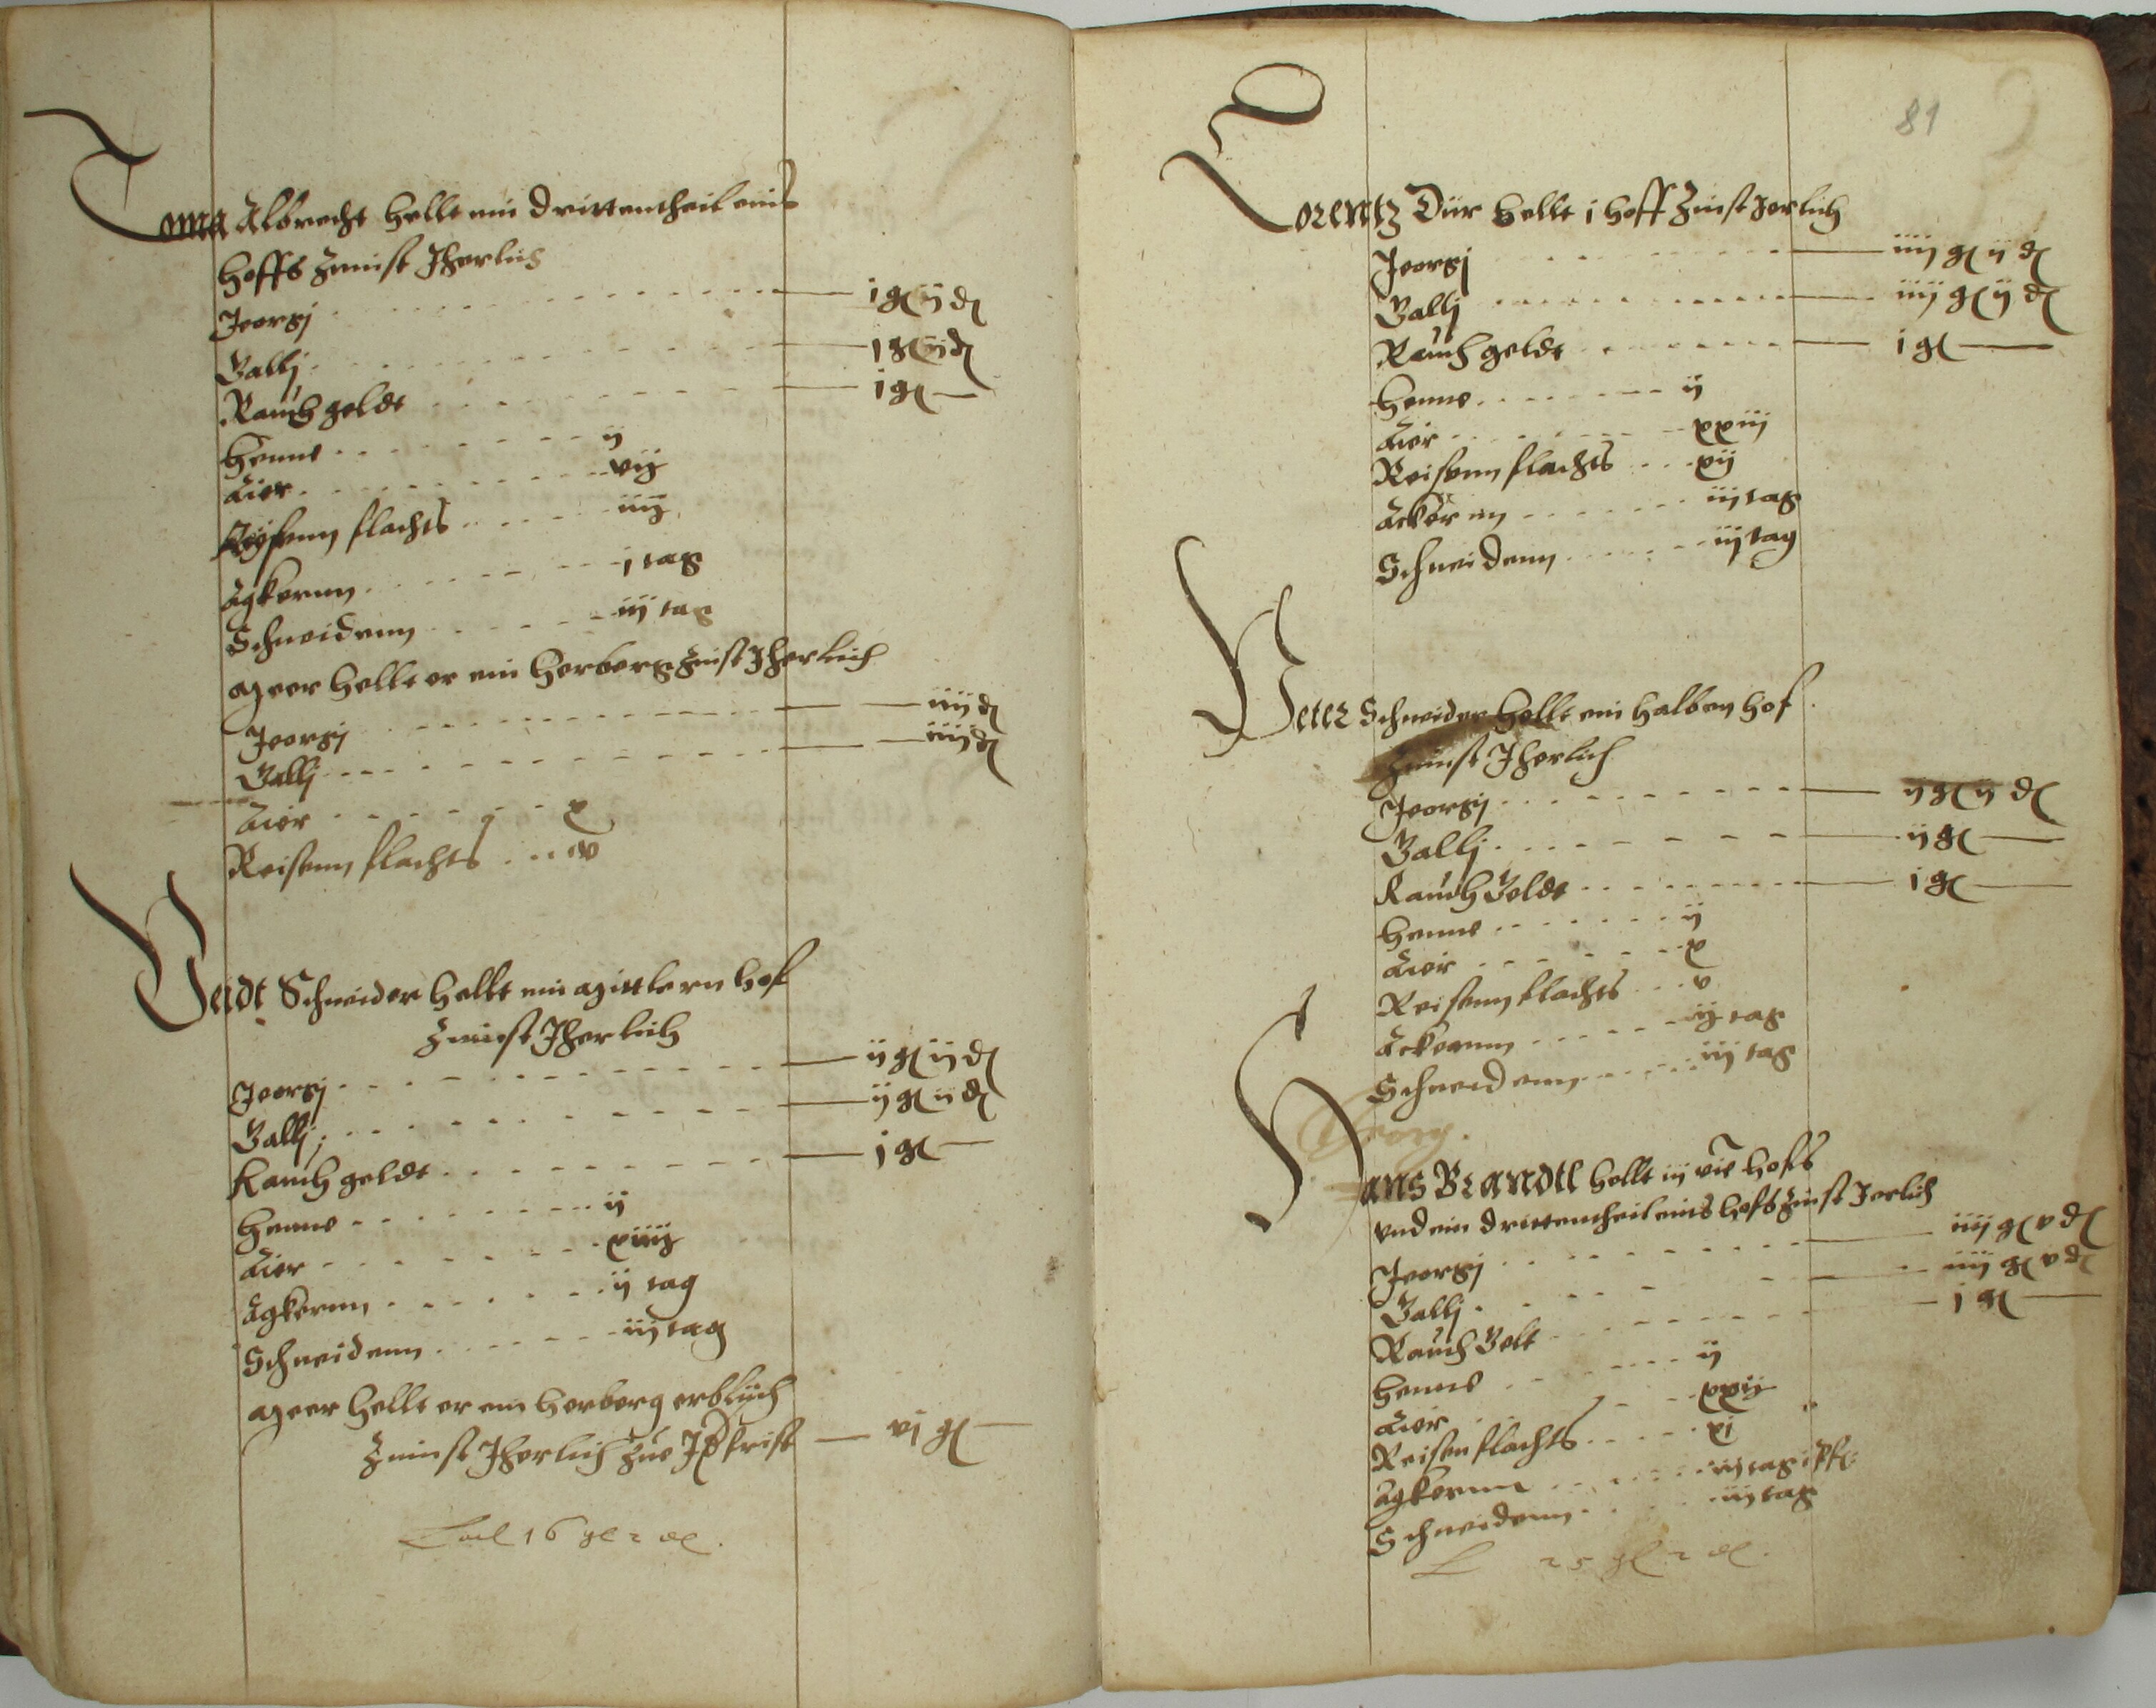 Toma Albrecht hellt ein drittentheil einß
Hoffs Zeinst Jherlich
Jeorgj - - - i gl ij dl
Gallj - - - i gl ij dl
Rauch geldt - - - i gl —
Henne - - - ij
Aier - - - vij
Reysenn flachs - - - iiij
Agkernn - - - j tag
Schneidenn - - - iij tag
Meer hellt er ein Herberg Zinst Jherlich
Jeorgj - - - iiij dl
Gallj - - - iiij dl
Aier - - - x
Reisenn flachs - - - v
Veidt Schneider hellt ein Mittlern Hof
Zeinst Jherlich
Jeorgj - - - ij gl ij dl
Gallj - - - ij gl ij dl
Rauch geldt - - - j gl —
Henne - - - ij
Aier - - - xiiij
Agkernn - - - ij tag
Schneidenn - - - iij tag
Meer hellt er ein Herberg erblich
Zeinst Jherlich Zue — vj gl —
16 gl 2 dl.
81
Lorentz Dür hellt i Hoff Zinst Jerlich
Jeorgj - - - iiij gl ij dl
Gallj - - - iiij gl ij dl
Rauch geldt - - - i gl —
Henne - - - ij
Aier - - - xxiij
Reisenn flachs - - - xij
Ackernn - - - iij tag
Schneidenn - - - iij tag
Peter Schneider hellt ein halben Hof
Zeinst Jherlich
Jeorgij - - - ij gl ij dl
Gallj - - - ij gl —
Rauch Geldt - - - i gl —
Henne - - - ij
Aier - - - x
Reisenn flachs - - - v
Ackernn - - - ij tag
Schneidenn - - - iij tag
Georg.
Hans Brandtl hellt iij vie Hofs
vnd ein drittentheil eins Hofs Zinst Jerlich
Jeorgj - - - iiij gl v dl
Gallj - - - iiij gl v dl
Rauch Gelt - - - j gl —
Henne - - - ij
Aier - - - xxij
Reisen flachs - - - xi
Agkernn - - - iij tag i
Schneidenn - - - iij tag
25 gl 2 dl.